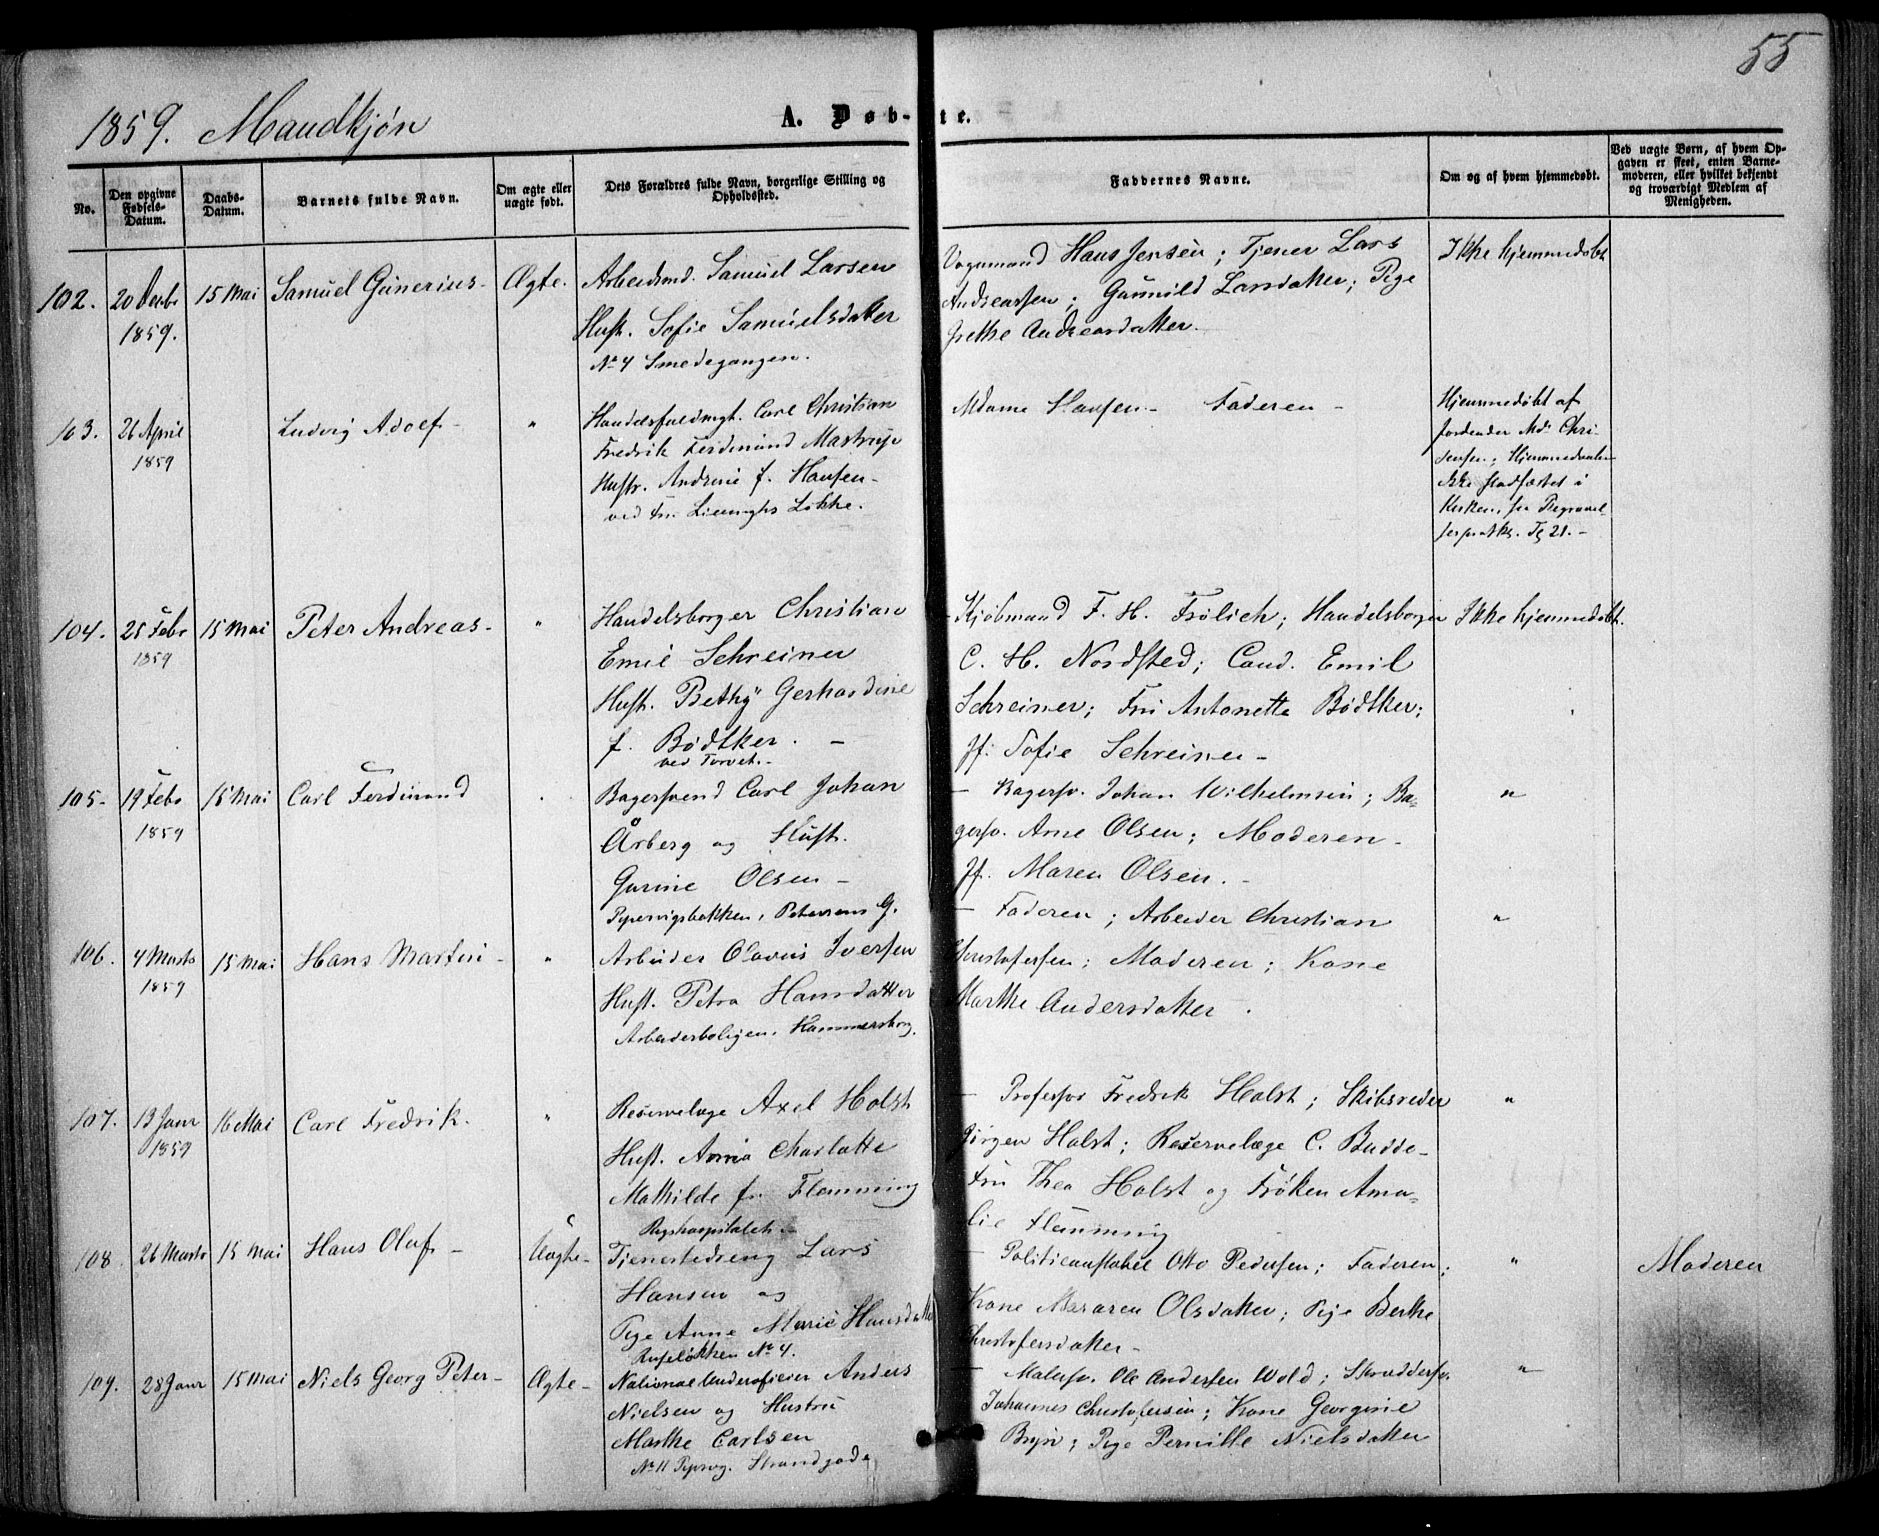 55
1859. Mandkjøn
A. Døb-te.
No.
Den opgivne Fødsels-Datum.
Daabs-Datum.
Barnets fulde Navn.
Om ægte eller uægte født.
Dets Forældres fulde Navn, borgerlige Stilling og Opholdssted.
Faddernes Navne.
Om og af hvem hjemmedøbt.
Ved uægte Børn, af hvem Opgaven er skeet, enten Barnemoderen, eller hvilket bekjendt og troværdigt Medlem af Menigheden.
102. 20 Decbr 1859. 15 Mai Samuel Gunerius- Ægte.
Arbeidsmd. Samuel Larsen
Hust. Sofie Samuelsdatter
No 4 Smedegangen.
Vognmand Hans Jensen; Tjener Lars
Andreassen; Gunnild Larsdatter; Pige
Grethe Andreasdatter.
Ikke hjemmedøbt
103. 26 April 1859 Ludvig Adolf- "
Handelsfuldmgt. Carl Christian
Fredrik Ferdinand Mastrup
Hustr. Andrine f. Hansen-
ved Fru Løkke.
Mdame Hansen- Faderen-
Hjemmedøbt af
Jordemoder Md. Chri-
stensen; Hjemmedaaben
ikke stadfæstet i
Kirken, se Begravel-
sesprotk. Fg 21.-
104. 25 Febr 1859 15 Mai Peter Andreas- "
Handelsborger Christian
Emil Schreiner
Hust. Bethy Gerhardine
f. Bødtker. -
ved Torvet.-
Kjøbmand F. H. Frølich; Handelsborger
C. H. Nordsted; Cand. Emil
Schreiner; Fru Antonette Bødtker;
Jf. Sofie Schreiner-
Ikke hjemmedøbt.
105- 19 Febr 1859 15 Mai Carl Ferdinand "
Bagersvend Carl Johan
Årberg og Hust.
Gurine Olsen-
Pipervigsbakken, Petersens G.
- Bagersv. Johan Wilhelmsen; Ba-
gersv. Arne Olsen; Moderen-
Jf. Maren Olsen.-
"
106. 4 Marts 1859 15 Mai Hans Martin- "
Arbeider Olavus Iversen
Hust. Petra Hansdatter
Arbeiderboligen. Hammersborg.
- Faderen; Arbeider Christian
Christofersen; Moderen; Kone
Marthe Andersdatter.
"
107. 13 Janr 1859 16 Mai Carl Fredrik. "
Reservelæge Axel Holst
Hust. Anna Charlotte
Mathilde f. Flemming
Rigshospitalet-
- Professor Fredrik Holst; Skibsreder
Jørgen Holst; Reservelæge C. Budde-
Fru Thea Holst og Frøken Ama-
lie Flemming
"
108. 26 Marts 15 Mai Hans Oluf- Uægte-
Tjenestedreng Lars
Hansen og
Pige Anne Marie Hansdatter
Ruseløkken No 4.
- Politieonstabel Otto Pedersen; Faderen;
Kone Maren Olsdatter; Pige Berthe
Christofersdatter-
" Moderen
109. 28 Janr 15 Mai Niels Georg Peter- Ægte-
National Underofficer Anders
Nielsen og Hustru
Marthe Carlsen
No 11 Piperv. Strandgade
- Malersv. Ole Andersen Wold; Skræddersv.
Johannes Christofersen; Kone Georgine
Bryn; Pige Pernille Nielsdatter
"